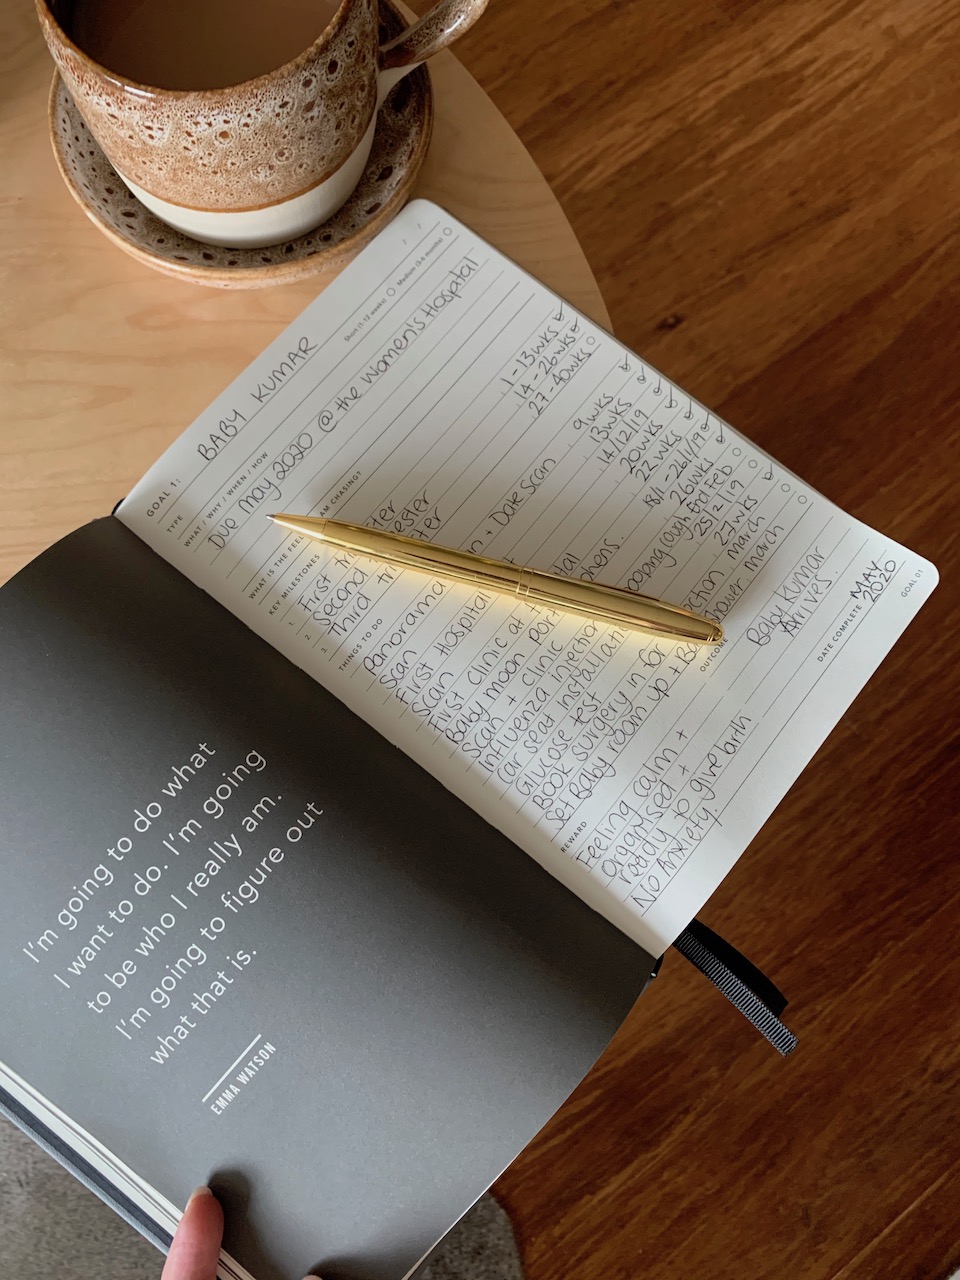 I'm going to do what
I want to do. I'm going
to be who I really am.
I'm going to figure out
what that is.
EMMA WATSON
GOAL 1: BABY KUMAR
TYPE Short (1-12 weeks) Medium (3-6 months)
WHAT / WHY / WHEN / HOW
Due May 2020 @ the Women's Hospital
WHAT IS THE FEEL AM CHASING?
KEY MILESTONES
1. First Tri ster 1-13wks
2. Second ester 14-26wks
3. Third Tri ter 27-40wks
THINGS TO DO
Panorama + Date Scan 9wks
Scan 13wks
First Hospital 14/12/19
Scan 20wks
First Clinic at tal 22wks
Baby moon Port phens. 18/1 - 26/1/19
Scan + clinic 26wks
Influenza injection cough End Feb
Car seat Installati 25/2/19
Glucose test 27wks
Book surgery in for ction March
Set Baby room up + Ba hower. March
REWARD
OUTCOME
Feeling calm +
organised +
ready to give birth
No Anxiety.
Baby Kumar
Arrives.
DATE COMPLETE MAY
2020
GOAL 01